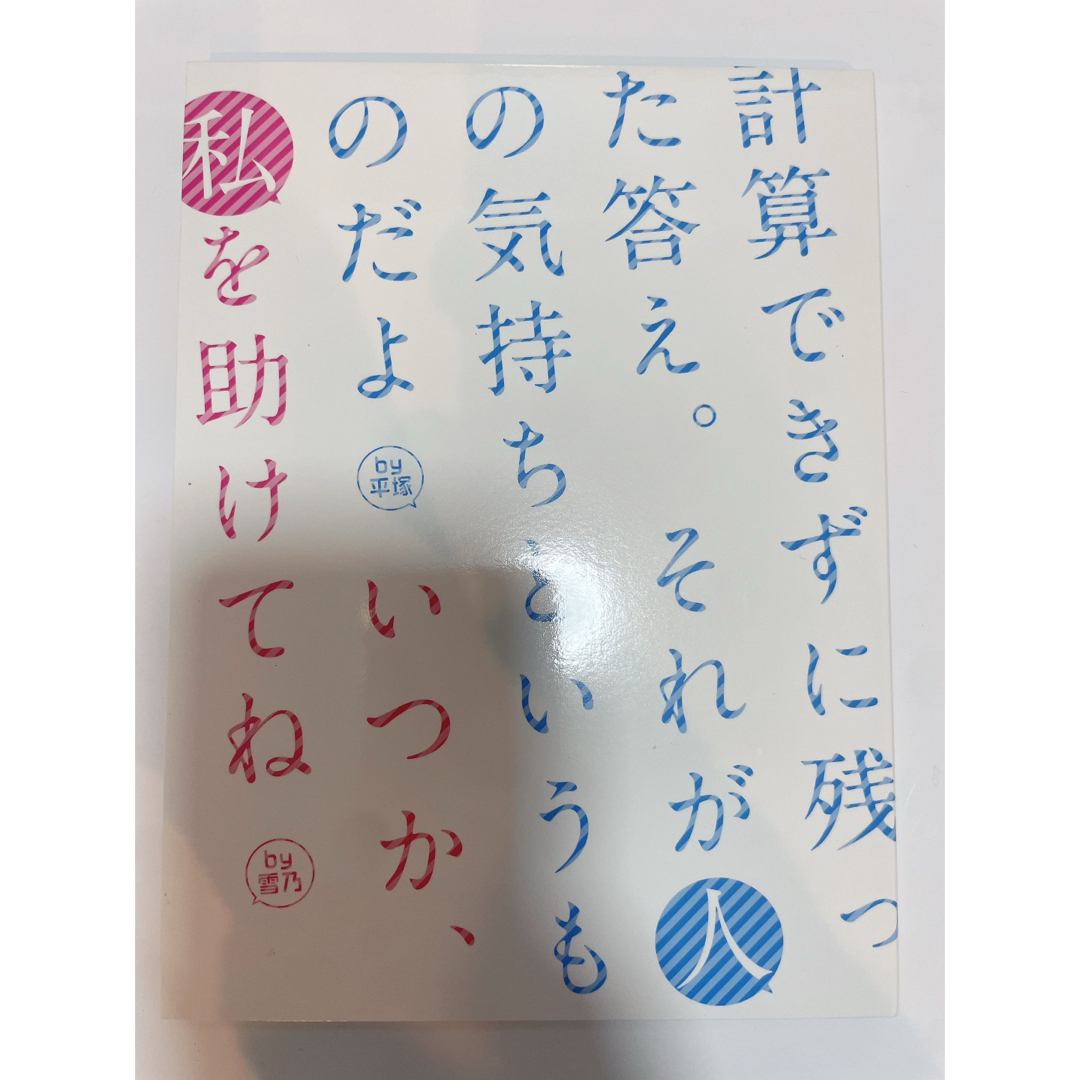 計算できずに残っ
た答え。それが人
の気持ちというも
のだよ by平塚 いつか、
私を助けてね by雪乃